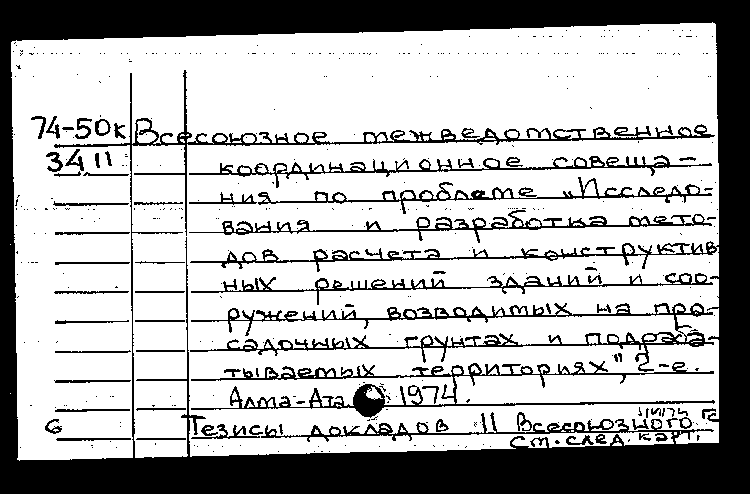 74-50к Всесоюзное межведомственное
3411 координационное совеща-
ния по проблеме „Исследо-
вания и разработка мето-
дов расчета и конструктив
ных решений зданий и соо-
ружений, возводимых на про-
садочных грунтах и подраба-
тываемых территориях", 2-е.
Алма-Ата 1974.
Тезисы докладов II Всесоюзного
См. след. карт.